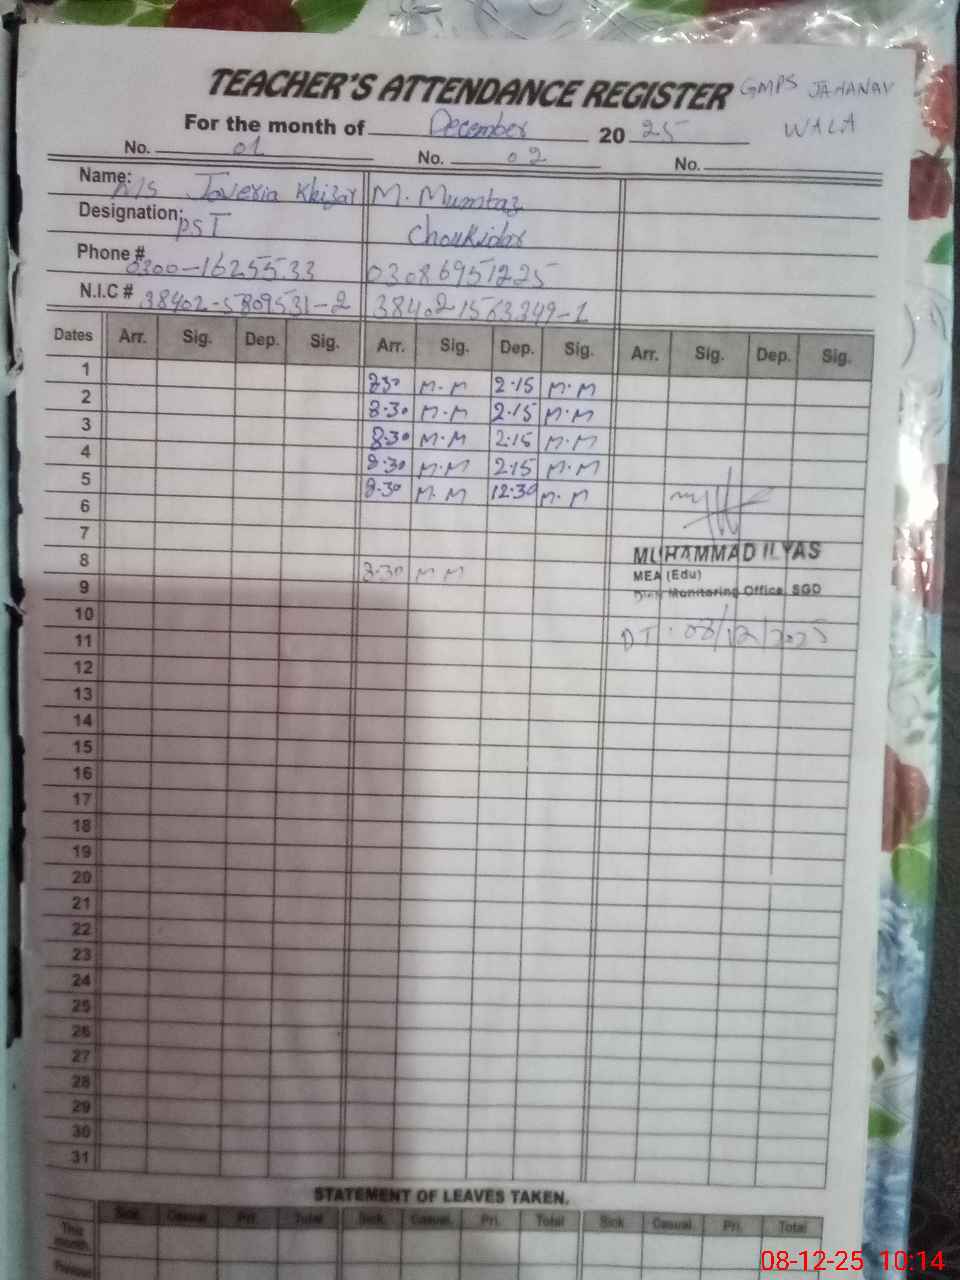 TEACHER'S ATTENDANCE REGISTER GMPS JAHANAV
WALA
For the month of December 20 25
No. 01 No. 02 No.
Name: M/S Javeria Khizar M. Mumtaz
Designation: PST Choukidar
Phone # 0300-1625533 03086951225
N.I.C # 38402-5809531-2 384021563349-1
Dates Arr. Sig. Dep. Sig. Arr. Sig. Dep. Sig. Arr. Sig. Dep. Sig.
1 830 M.M 2.15 M.M
2 8.30 M.M 2.15 M.M
3 8.30 M.M 2.15 M.M
4 8.30 M.M 2.15 M.M
5 8.30 M.M 12.30 M.M
6
7
MUHAMMAD ILYAS
8 8.30 M M
MEA (Edu)
9
Monitoring Office, SGD
10
11 DT: 08/12/2025
12
13
14
15
16
17
18
19
20
21
22
23
24
25
26
27
28
29
30
31
STATEMENT OF LEAVES TAKEN.
Sick. Casual. Pri. Total Sick. Casual. Pri. Total Sick. Casual. Pri. Total
This month.
08-12-25 10:14